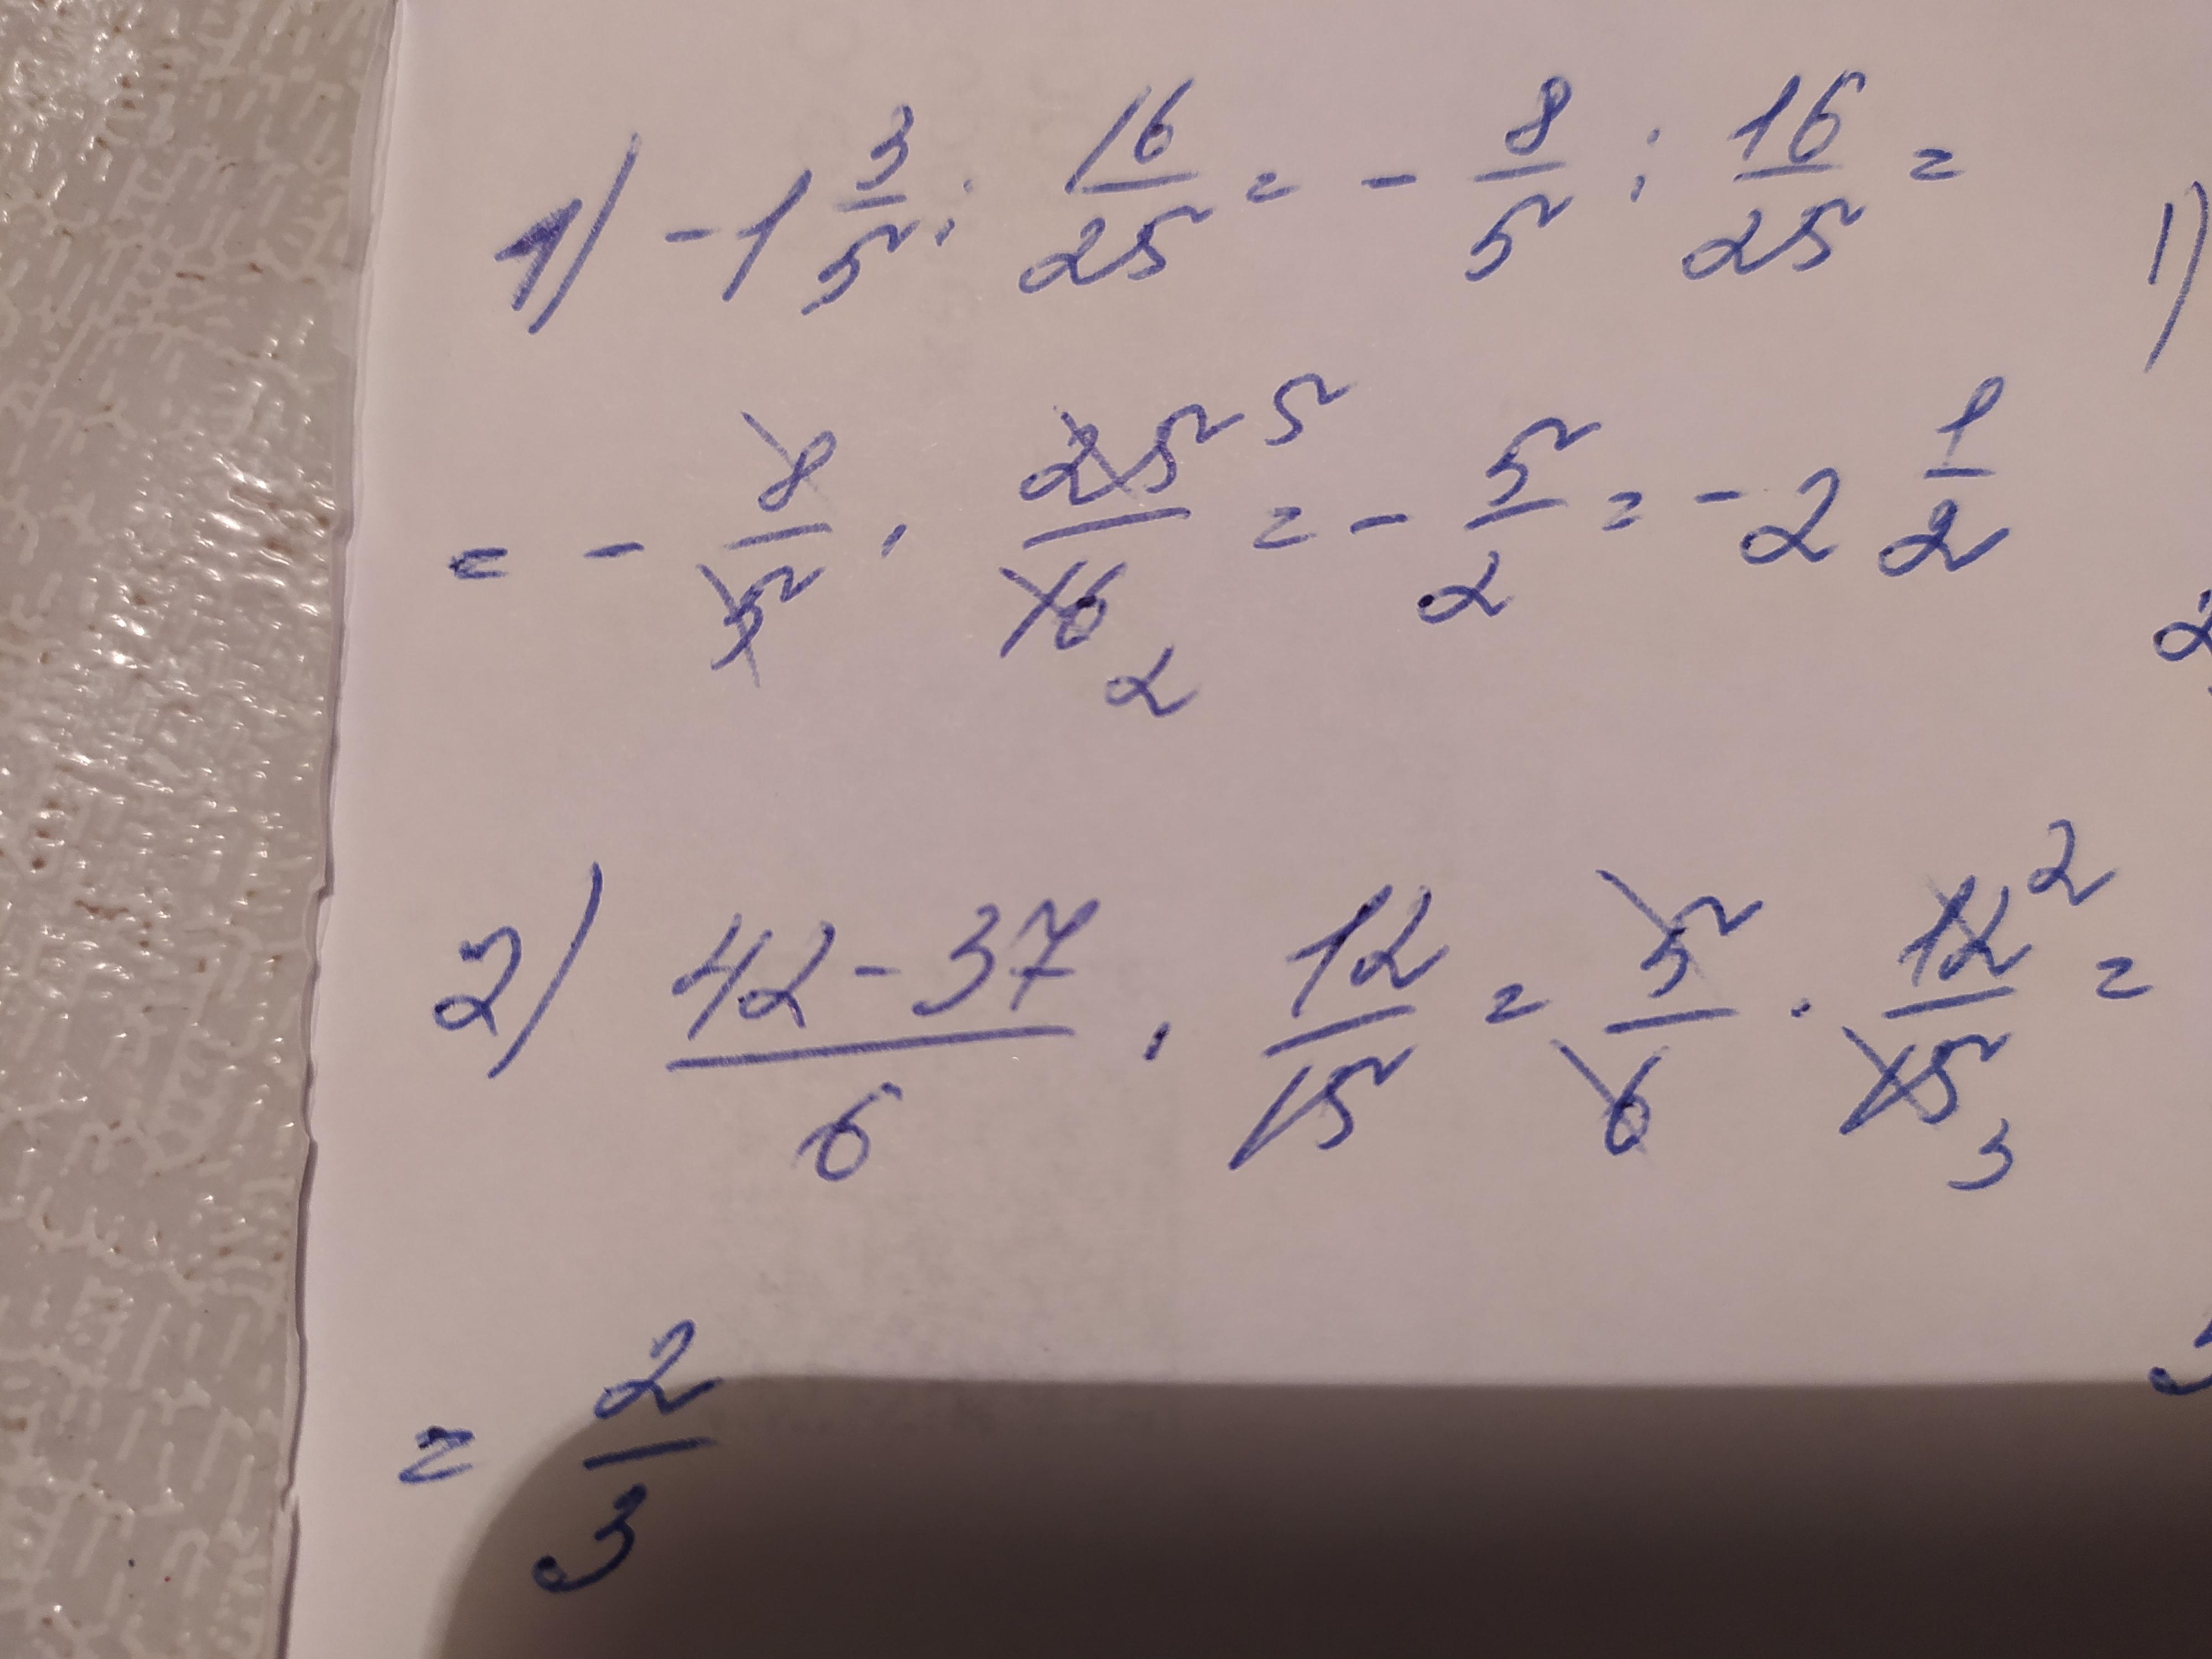 1) -1 3/5 : 16/25 = - 8/5 : 16/25 =
= - 8/5 · 25/16 5 2 = - 5/2 = -2 1/2
2) (42-37)/6 · 12/15 = 5/6 · 12/15 2 3 =
= 2/3
1)